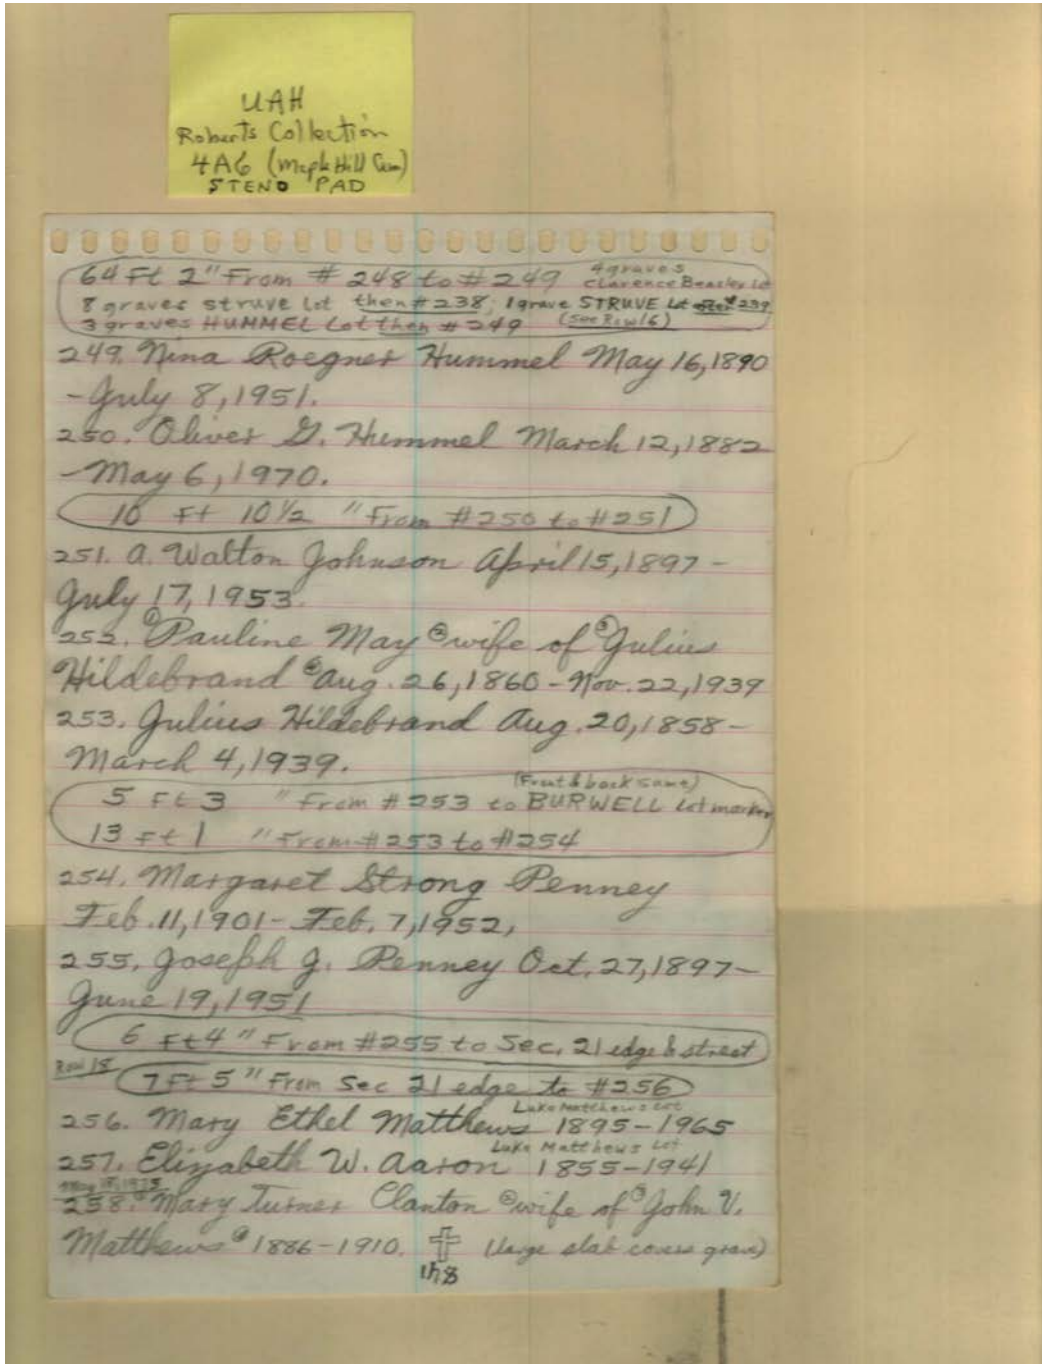 UAH
Roberts Collection
4A6 (Maple Hill Cem)
STENO PAD
64 Ft 2" From # 248 to # 249 4 graves
Clarence Beasley Lot
8 graves Struve Lot then # 238; 1 grave STRUVE Lot # 239
3 graves HUMMEL Lot then # 249 (See Row 16)
249. Nina Roegner Hummel May 16, 1890
- July 8, 1951.
250. Oliver G. Hummel March 12, 1882
- May 6, 1970.
10 Ft 10 1/2 " From # 250 to # 251
251. A. Walton Johnson April 15, 1897 -
July 17, 1953.
252. ① Pauline May ② wife of ③ Julius
Hildebrand ④ Aug. 26, 1860 - Nov. 22, 1939
253. Julius Hildebrand Aug. 20, 1858 -
March 4, 1939.
(Front & back same)
5 Ft 3 " From # 253 to BURWELL Lot marker
13 Ft 1 " From # 253 to # 254
254. Margaret Strong Penney
Feb. 11, 1901 - Feb. 7, 1952,
255. Joseph J. Penney Oct. 27, 1897 -
June 19, 1951
6 Ft 4 " From # 255 to Sec. 21 edge & street
Row 18
7 Ft 5 " From Sec 21 edge to # 256
Luke Matthews Lot
256. Mary Ethel Matthews 1895 - 1965
Luke Matthews Lot
257. Elizabeth W. Aaron 1855 - 1941
258. ① Mary Turner Clanton ② wife of ③ John V.
Matthews ④ 1886 - 1910. (large slab covers grave)